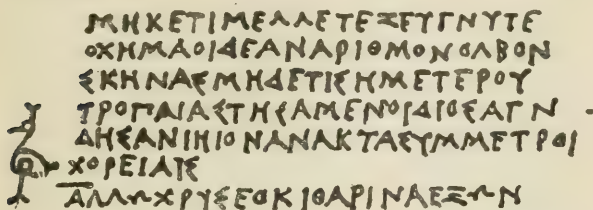 ΜΗΚΕΤΙΜΕΛΛΕΤΕΖΕΥΓΝΥΤΕ
ΟΧΗΜΑΟΙΔΕΑΝΑΡΙΘΜΟΝΟΛΒΟΝ
ΣΚΗΝΑΣΜΗΔΕΤΙΣΗΜΕΤΕΡΟΥ
ΤΡΟΠΑΙΑΣΤΗΣΑΜΕΝΟΙΔΙΟΣΑΓΝ
ΔΗΣΑΝΙΗΙΟΝΑΝΑΚΤΑΣΥΜΜΕΤΡΟΙ
ΧΟΡΕΙΑΙΣ
ΑΛΛΩΧΡΥΣΕΟΚΙΘΑΡΙΝΑΕΞΩΝ